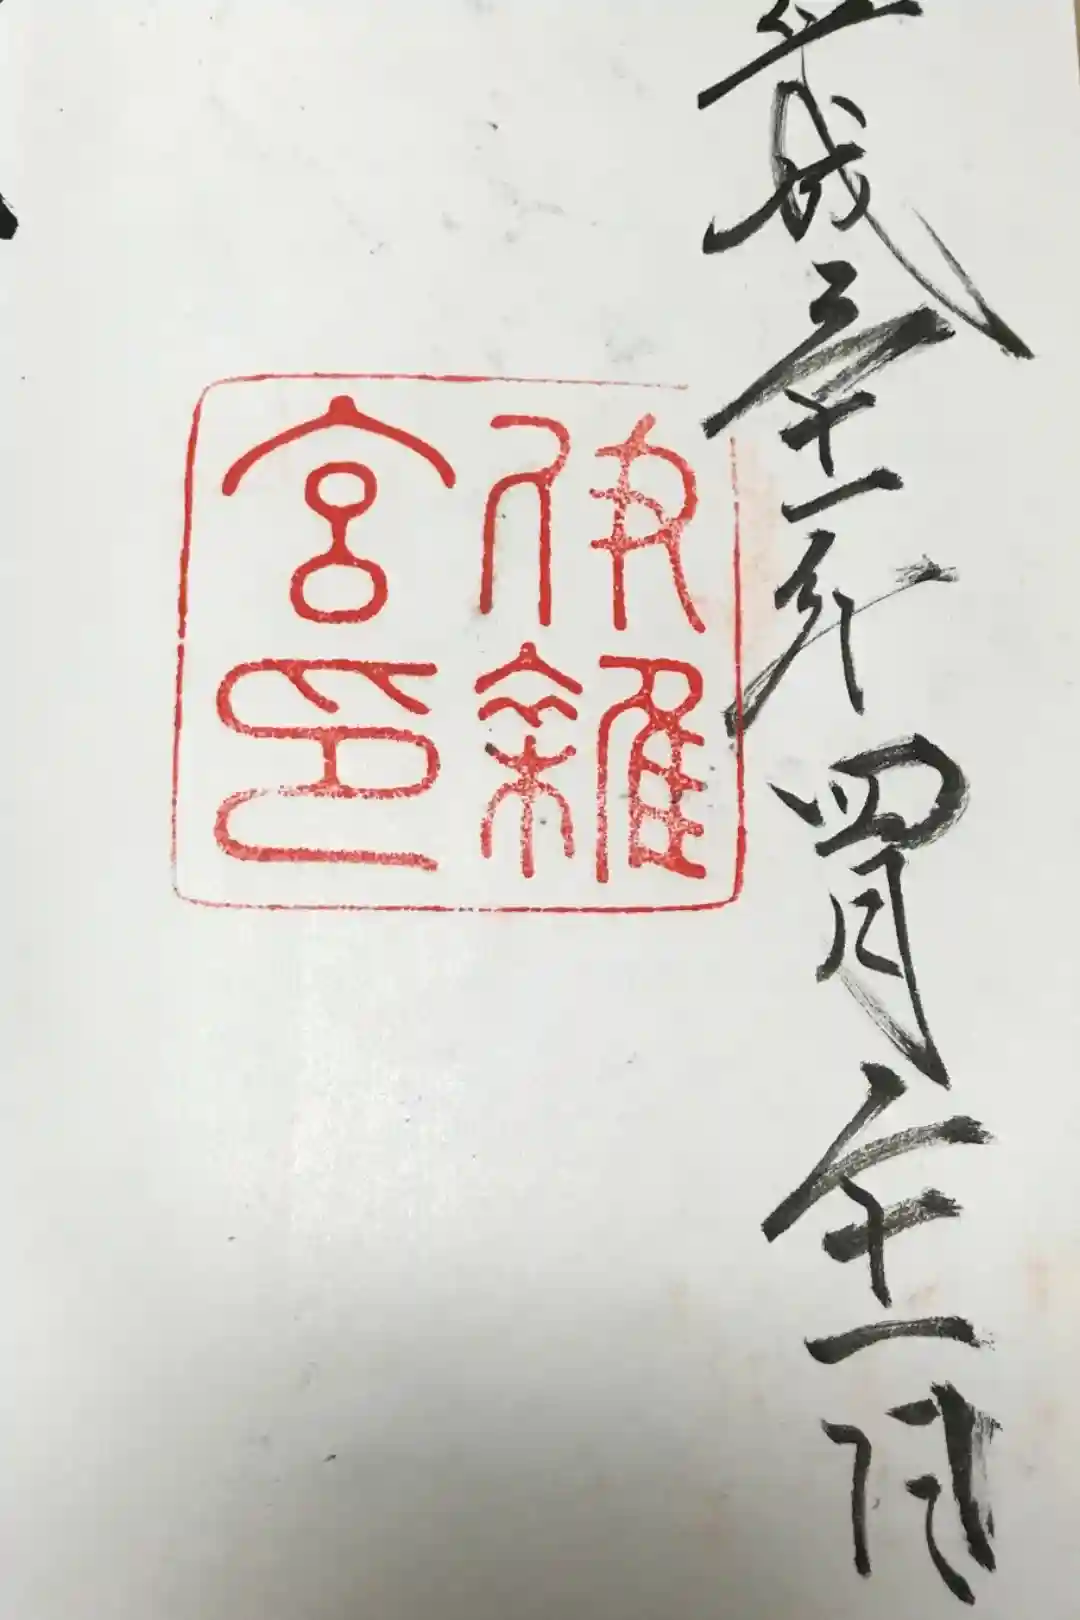 平成三十一年四月二十一日
伊雜
宮印